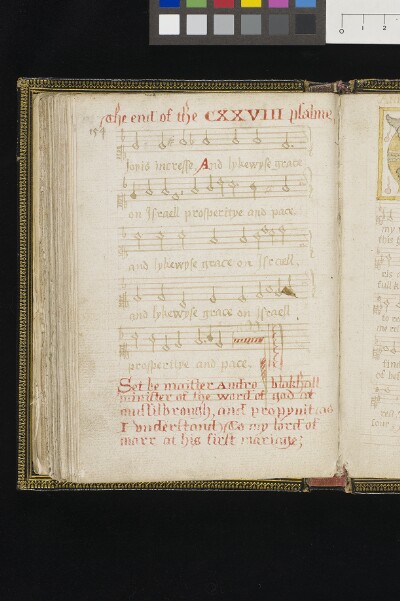 The end of the CXXVIII psalme
157
Ionis incresse And lykewyse grace
on Israell prosperitye and pace.
and lykewyse grace on Israell,
and lykewyse grace on Israell
prosperitye and pace.
Set be maister Andro blakhall
minister of the word of god at
mussilbrough, and propynit, as
I understand, To my lord of
marr at his first mariage;
0 1 2